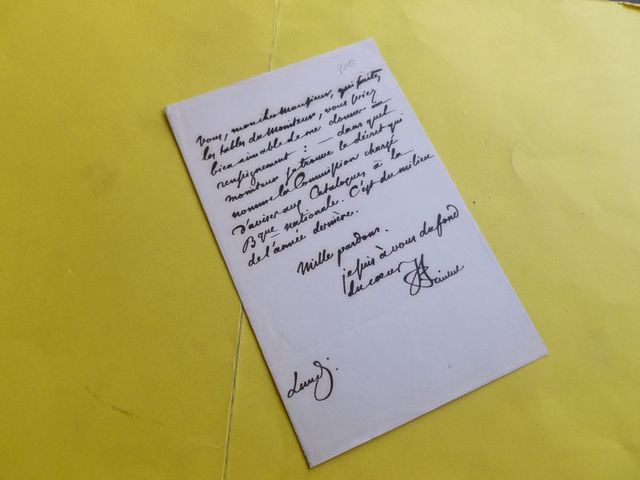 900
Vous, mon cher Monsieur, qui faites
les tables du Moniteur, vous seriez
bien aimable de me donner un
renseignement : — dans quel
moniteur se trouve le décret qui
nomme la Commission chargé
d'aviser aux Catalogues à la
Bque nationale. C'est du milieu
de l'année dernière.
Mille pardons.
je suis à vous du fond
du coeur
Lundi.